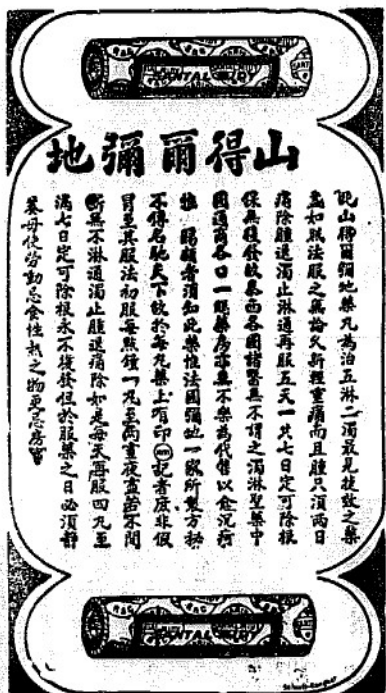 山得爾彌地
此山得爾彌地藥丸為治五淋二濁最見捷效之藥
盖如照法服之無論久新輕重痛而且腫只須兩日
痛除腫退濁止淋通再服五天一共七日定可除根
保無復發故泰西各國諸醫無不謂之濁淋聖藥中
國通商各口一體藥房亦無不樂為代售以愈沉疴
惟 賜顧者須知此藥惟法國彌地一家所製方秘
不傳名馳天下故於每丸藥上有印記者庶非假
冒至其服法初服每點鐘一丸至兩晝夜盖若不間
斷無不淋通濁止腫退痛除如是每天再服四丸至
滿七日定可除根永不復發但於服藥之日必須靜
養毋使勞動忌食性熱之物更忌房事
SANTAL MIDY